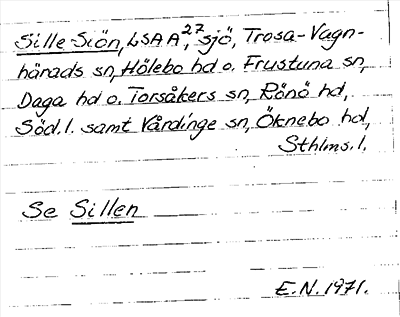 Sille-Siön, LSA A²⁷, sjö, Trosa-Vagn-
härads sn, Hölebo hd o. Frustuna sn,
Daga hd o. Torsåkers sn, Rönö hd,
Söd.l. samt Vårdinge sn, Öknebo hd,
Sthlms.l.
Se Sillen
E.N. 1971.